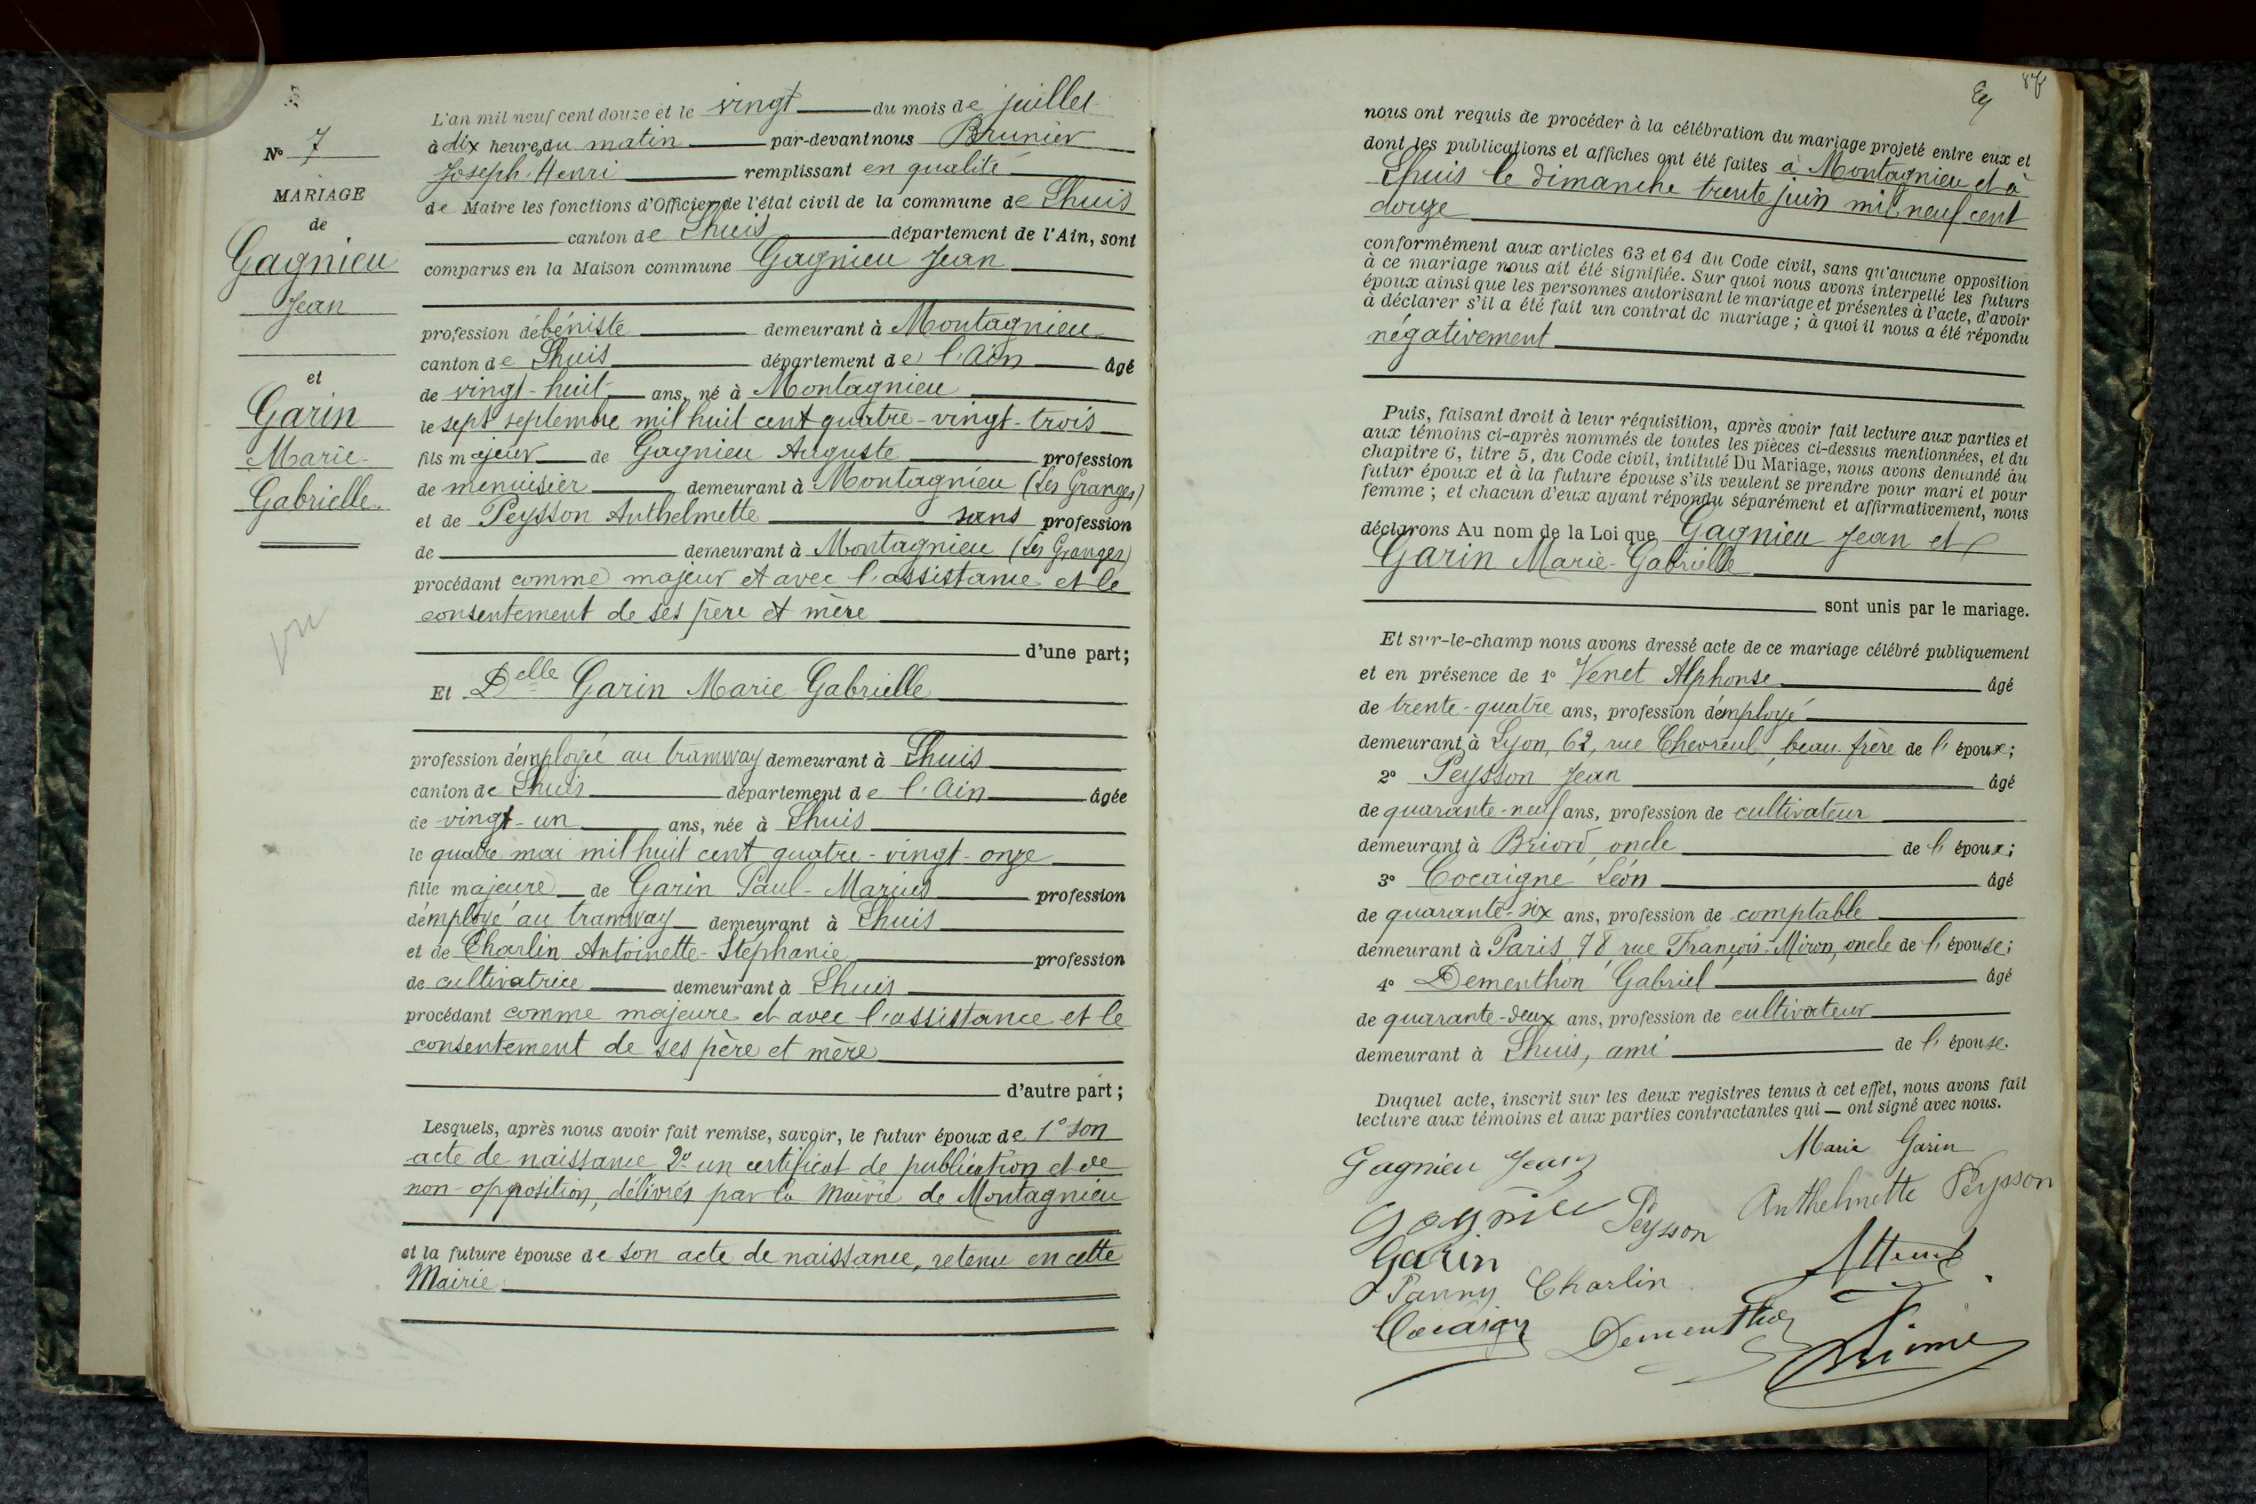 N° 7
MARIAGE
de
Gagnieu
Jean
et
Garin
Marie-
Gabrielle.
vu
L'an mil neuf cent douze et le vingt du mois de juillet
à dix heures du matin par-devant nous Brunier
Joseph-Henri remplissant en qualité
de Maire les fonctions d'Officier de l'état civil de la commune de Lhuis
canton de Lhuis département de l'Ain, sont
comparus en la Maison commune Gagnieu Jean
profession d'ébéniste demeurant à Montagnieu
canton de Lhuis département de l'Ain âgé
de vingt-huit ans, né à Montagnieu
le sept septembre mil huit cent quatre-vingt-trois
fils majeur de Gagnieu Auguste profession
de menuisier demeurant à Montagnieu (Les Granges)
et de Peysson Anthelmette sans profession
de demeurant à Montagnieu (Les Granges)
procédant comme majeur et avec l'assistance et le
consentement de ses père et mère
d'une part;
Et Delle Garin Marie-Gabrielle
profession d'employée au tramway demeurant à Lhuis
canton de Lhuis département de l'Ain âgée
de vingt-un ans, née à Lhuis
le quatre mai mil huit cent quatre-vingt-onze
fille majeure de Garin Paul-Marius profession
d'employé au tramway demeurant à Lhuis
et de Charlin Antoinette-Stephanie profession
de cultivatrice demeurant à Lhuis
procédant comme majeure et avec l'assistance et le
consentement de ses père et mère
d'autre part;
Lesquels, après nous avoir fait remise, savoir, le futur époux de 1° son
acte de naissance 2° un certificat de publication et de
non-opposition, délivrés par la Mairie de Montagnieu
et la future épouse de son acte de naissance, retenu en cette
Mairie
87
nous ont requis de procéder à la célébration du mariage projeté entre eux et
dont les publications et affiches ont été faites à Montagnieu et à
Lhuis le dimanche trente juin mil neuf cent
douze
conformément aux articles 63 et 64 du Code civil, sans qu'aucune opposition
à ce mariage nous ait été signifiée. Sur quoi nous avons interpellé les futurs
époux ainsi que les personnes autorisant le mariage et présentes à l'acte, d'avoir
à déclarer s'il a été fait un contrat de mariage; à quoi il nous a été répondu
négativement
Puis, faisant droit à leur réquisition, après avoir fait lecture aux parties et
aux témoins ci-après nommés de toutes les pièces ci-dessus mentionnées, et du
chapitre 6, titre 5, du Code civil, intitulé Du Mariage, nous avons demandé au
futur époux et à la future épouse s'ils veulent se prendre pour mari et pour
femme; et chacun d'eux ayant répondu séparément et affirmativement, nous
déclarons Au nom de la Loi que Gagnieu Jean et
Garin Marie-Gabrielle
sont unis par le mariage.
Et sur-le-champ nous avons dressé acte de ce mariage célébré publiquement
et en présence de 1° Venet Alphonse âgé
de trente-quatre ans, profession d'employé
demeurant à Lyon, 62, rue Chevreul, beau-frère de l'époux;
2° Peysson Jean âgé
de quarante-neuf ans, profession de cultivateur
demeurant à Briord, oncle de l'époux;
3° Cocaigne Léon âgé
de quarante-six ans, profession de comptable
demeurant à Paris, 78, rue François-Miron, oncle de l'épouse;
4° Dementhon Gabriel âgé
de quarante-deux ans, profession de cultivateur
demeurant à Lhuis, ami de l'épouse.
Duquel acte, inscrit sur les deux registres tenus à cet effet, nous avons fait
lecture aux témoins et aux parties contractantes qui — ont signé avec nous.
Gagnieu Jean Marie Garin
Gagnieu Peysson Anthelmette Peysson
Garin
Fanny Charlin
Cocaigne Dementhon